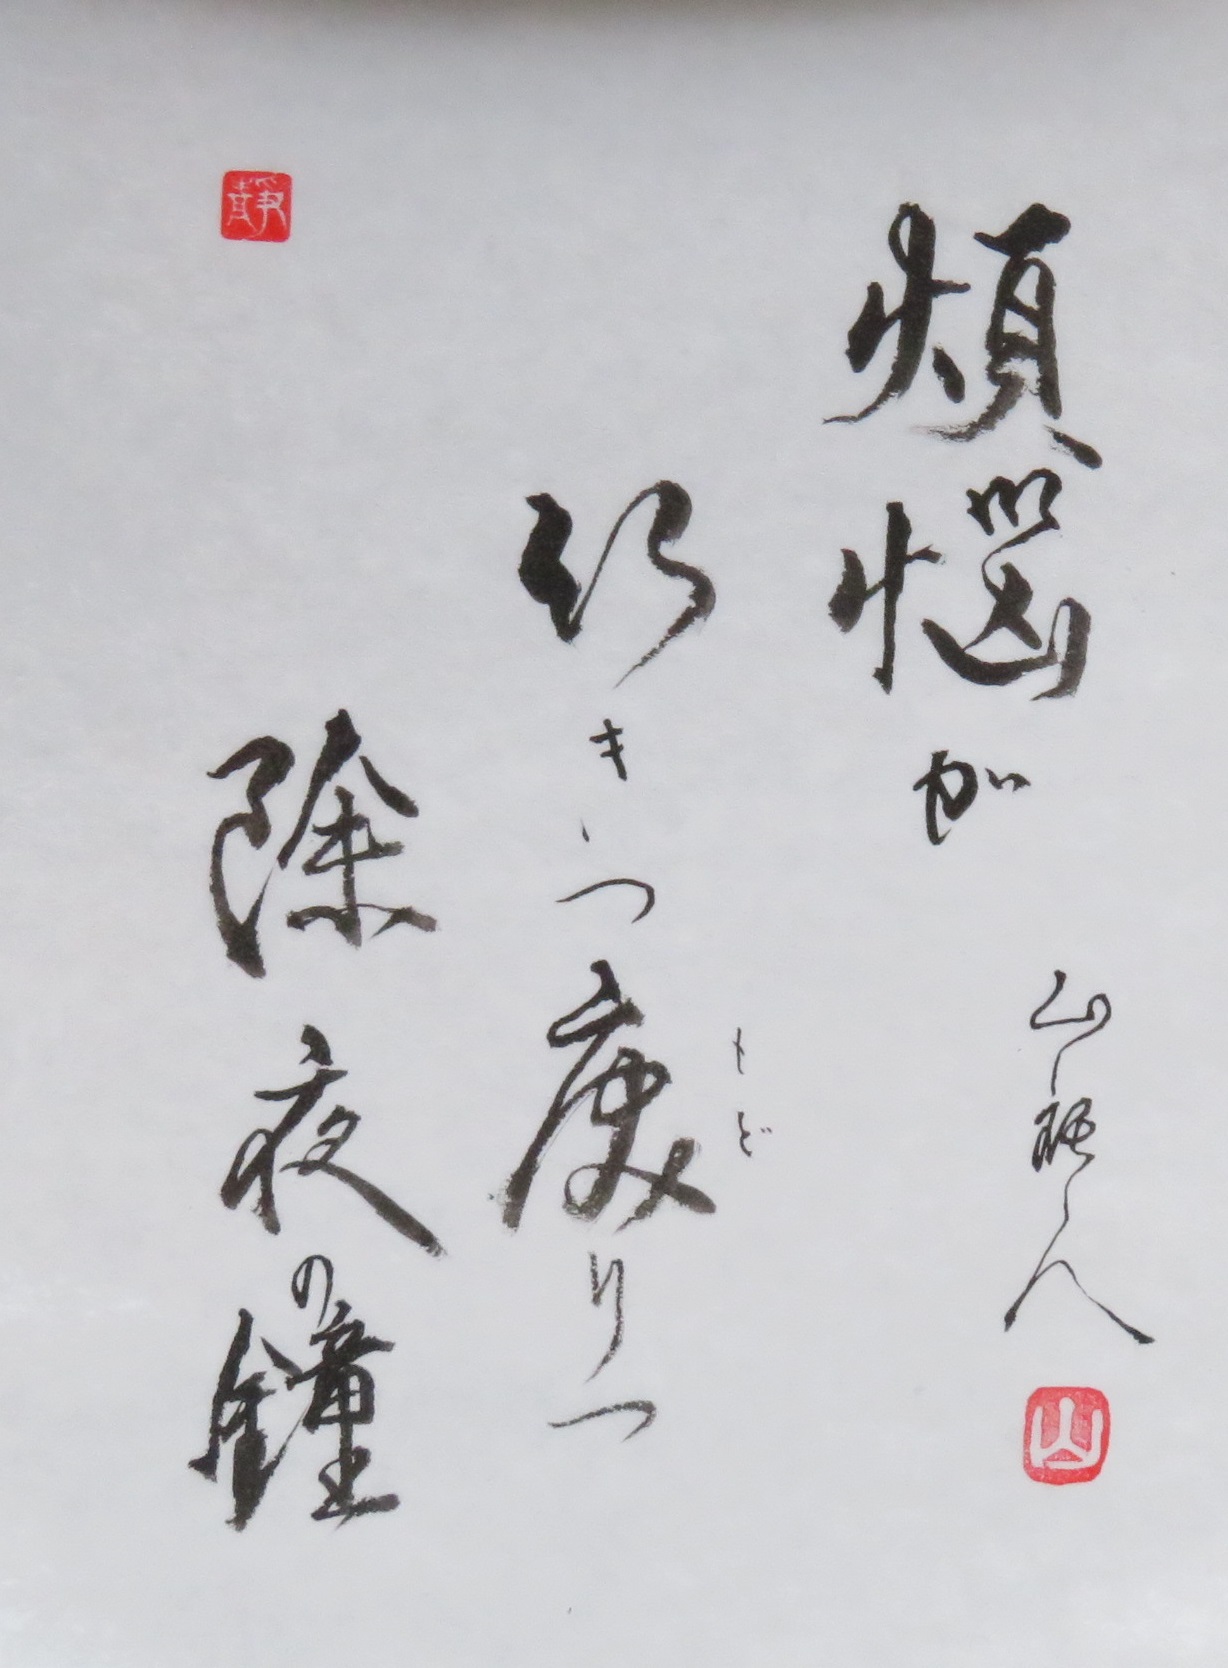 煩悩が
行きつ戻りつ
もど
除夜の鐘
山 人
山
静